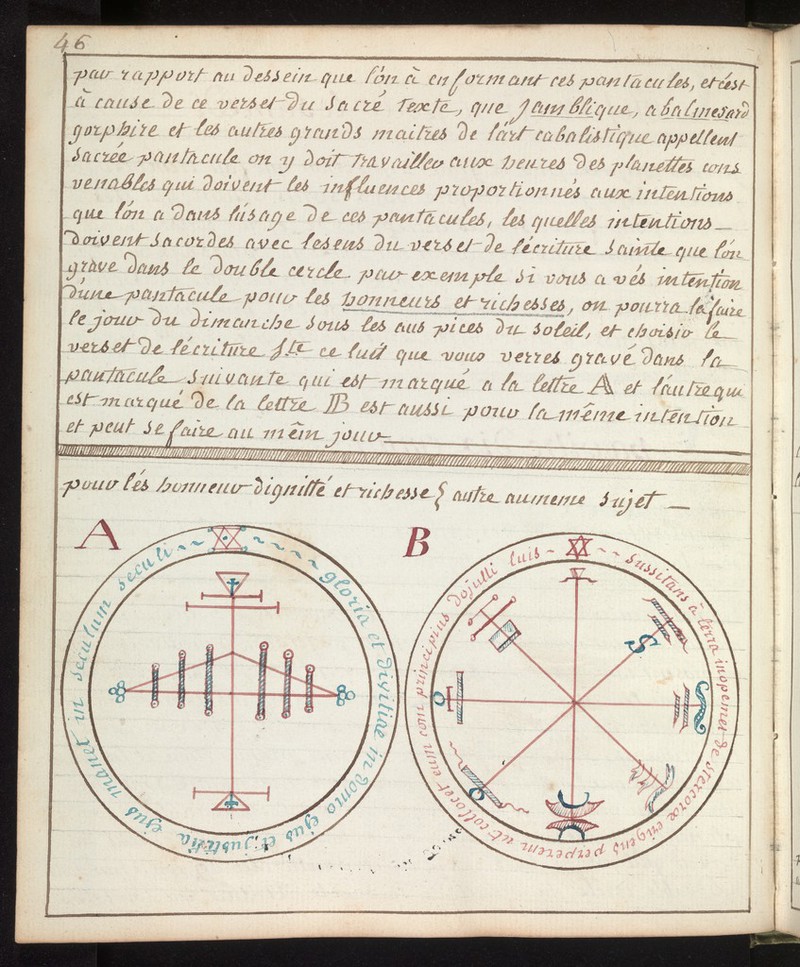 46
par rapport au dessein que l'on à en formant ces pantacules, et c'est
à cause de ce verset du sacré texte, que jamblique, abalmesard
gorphire et les autres grands maitres de l'art cabalistique appellent
sacrée pantacule on y doit travailler aux heures des planettes cons
venables qui doivent les influences proportionnés aux intentions
que l'ón a dans lúsage de ces pantacules, les quelles intentions_
doivent sacordes avec lesens du verset de l'écriture Sainte que l'ón
grave dans le double cercle par exemple si vous avés intention
d'une pantacule pour les honneurs et richesses, on pourra la faire
le jour du dimanche sous les auspices du soleil, et choisir le
verset de l'écriture Ste ce luit que vous verres gravé dans la
pantacule suivante qui est marqué a la lettre A et l'autre qui
est marqué de la lettre B est aussi pour la même intention
et peut se faire au mêm jour
pour lés honneur dignitté et richesse { autre aumeme sujet _
A
gloria et divitiae in domo ejus et justitia ejus manet in seculum seculi
B
sussitans à terra inopemet de stercorae erigens perperem ut collocet eum com principius dojulli luis